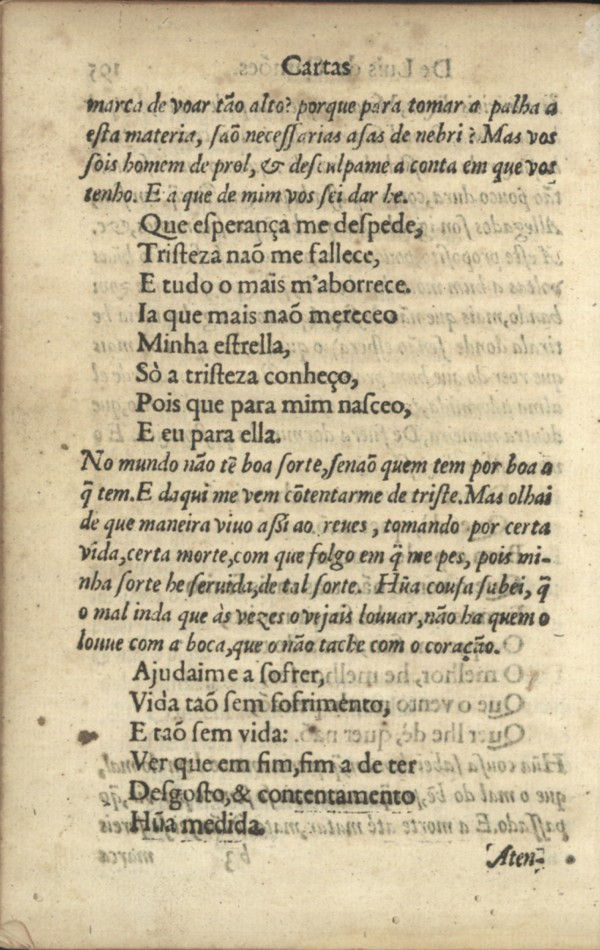 Cartas
marca de voar tão alto? porque para tomar a palha a
esta materia, saõ necessarias asas de nebri? Mas vos
sois homem de prol, & desculpame a conta em que vos
tenho. E a que de mim vos sei dar he.
Que esperança me despede,
Tristeza naõ me fallece,
E tudo o mais m'aborrece.
Ia que mais naõ mereceo
Minha estrella,
Sò a tristeza conheço,
Pois que para mim nasceo,
E eu para ella.
No mundo não tẽ boa sorte, senaõ quem tem por boa a
q̃ tem. E daqui me vem cõtentarme de triste. Mas olhai
de que maneira viuo assi ao reues, tomando por certa
vida, certa morte, com que folgo em q̃ me pes, pois mi-
nha sorte he seruida, de tal sorte. Hũa cousa sabei, q̃
o mal inda que às vezes o vejais louuar, não ha quem o
louue com a boca, que o não tache com o coração.
Ajudaime a sofrer,
Vida taõ sem sofrimento,
E taõ sem vida:
Ver que em fim, fim a de ter
Desgosto, & contentamento
Hũa medida.
Aten-